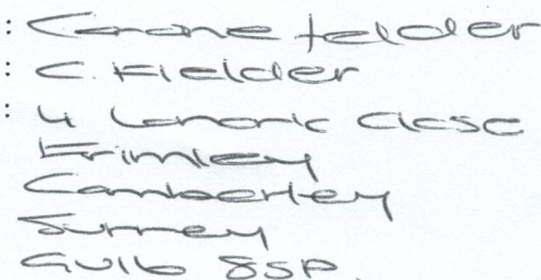 : fielder
: C. Fielder
: 4 Close
Frimley
Camberley
Surrey
GU16 8SP.